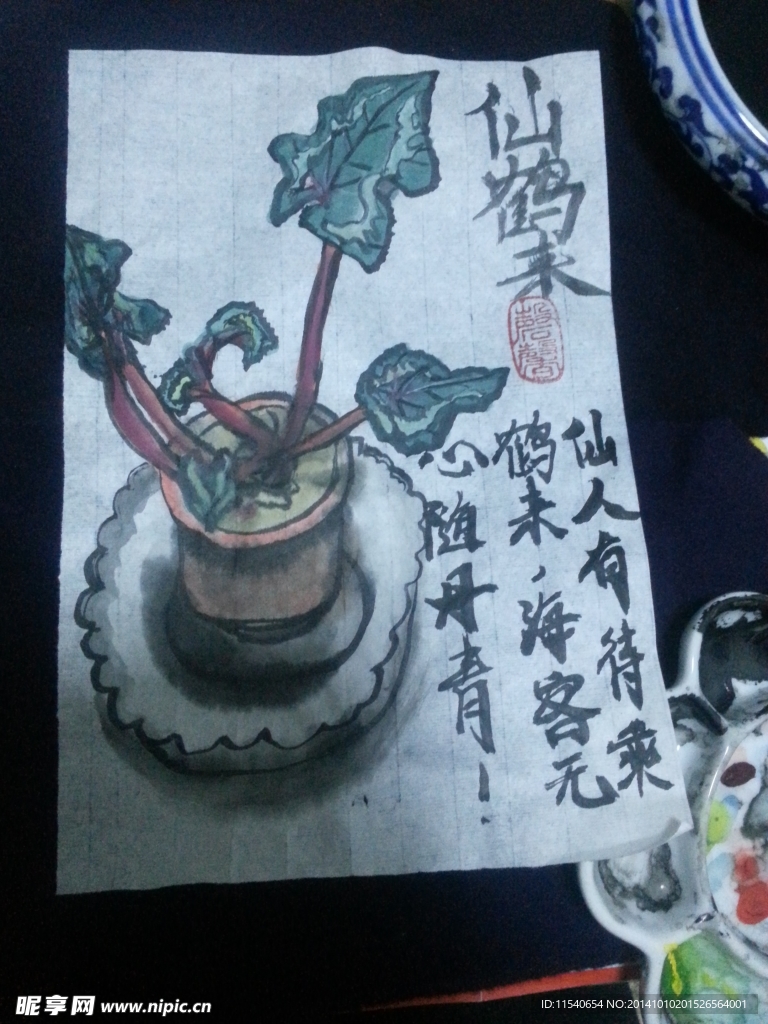 仙鹤来
仙人有待乘
鹤来，海客无
心随丹青一
昵享网 www.nipic.cn
ID:11540654 NO:20141010201526564001